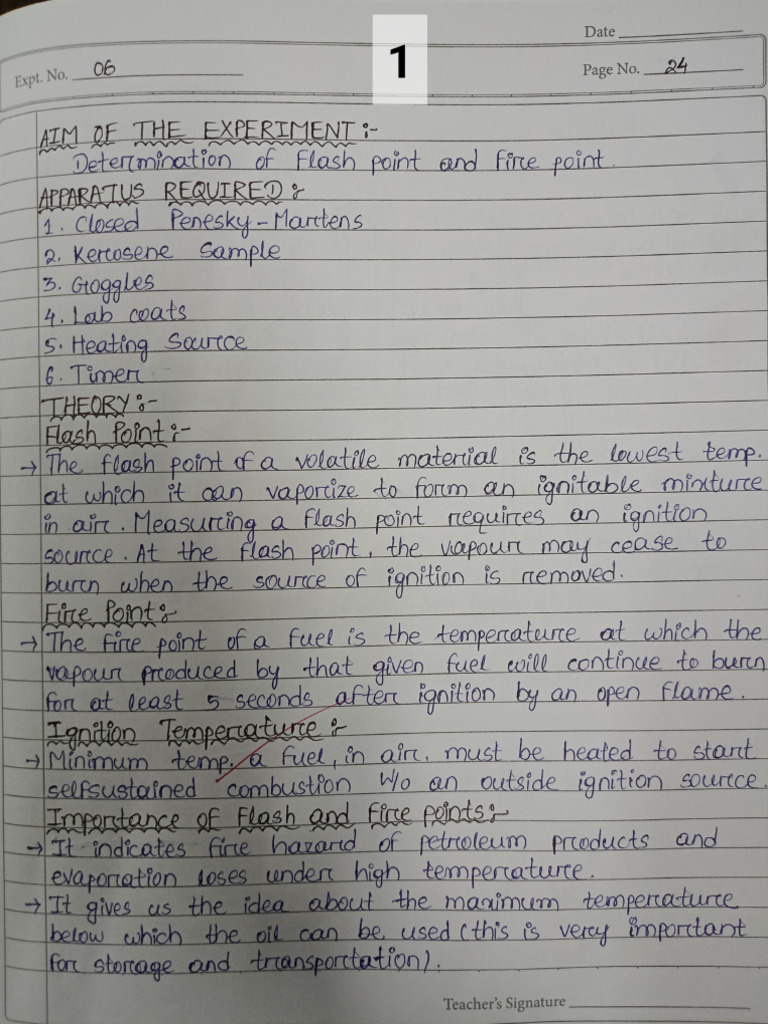 1
Date
Expt. No. 06
Page No. 24
AIM OF THE EXPERIMENT :-
Determination of Flash point and fire point.
APPARATUS REQUIRED :-
1. Closed Penesky-Martens
2. Kerosene Sample
3. Goggles
4. Lab coats
5. Heating Source
6. Timer
THEORY :-
Flash Point :-
→ The flash point of a volatile material is the lowest temp.
at which it can vaporize to form an ignitable mixture
in air. Measuring a flash point requires an ignition
source. At the flash point, the vapour may cease to
burn when the source of ignition is removed.
Fire Point :-
→ The fire point of a fuel is the temperature at which the
vapour produced by that given fuel will continue to burn
for at least 5 seconds after ignition by an open flame.
Ignition Temperature :-
→ Minimum temp. a fuel, in air, must be heated to start
selfsustained combustion w/o an outside ignition source.
Importance of Flash and fire points :-
→ It indicates fire hazard of petroleum products and
evaporation loses under high temperature.
→ It gives us the idea about the maximum temperature
below which the oil can be used (this is very important
for storage and transportation).
Teacher's Signature